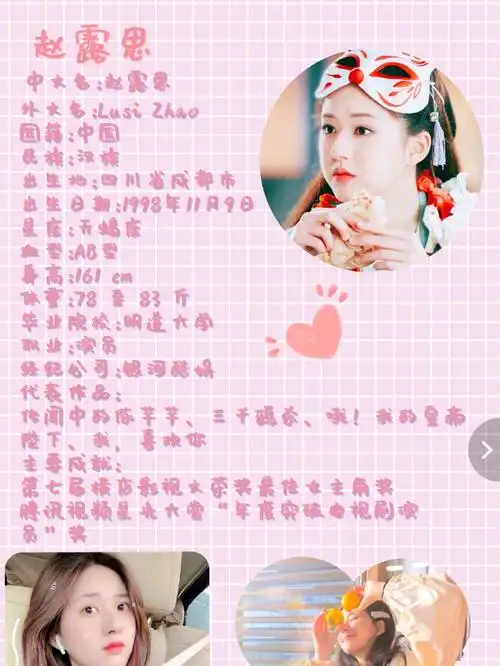 赵露思
中文名:赵露思
外文名:Lusi Zhao
国籍:中国
民族:汉族
出生地:四川省成都市
出生日期:1998年11月9日
星座:天蝎座
血型:AB型
身高:161 cm
体重:78 至 83 斤
毕业院校:明道大学
职业:演员
经纪公司:银河酷娱
代表作品:
传闻中的陈芊芊、三千鸦杀、哦！我的皇帝
陛下、我，喜欢你
主要成就:
第七届横店影视大荣奖最佳女主角奖
腾讯视频星光大赏“年度突破电视剧演
员”奖